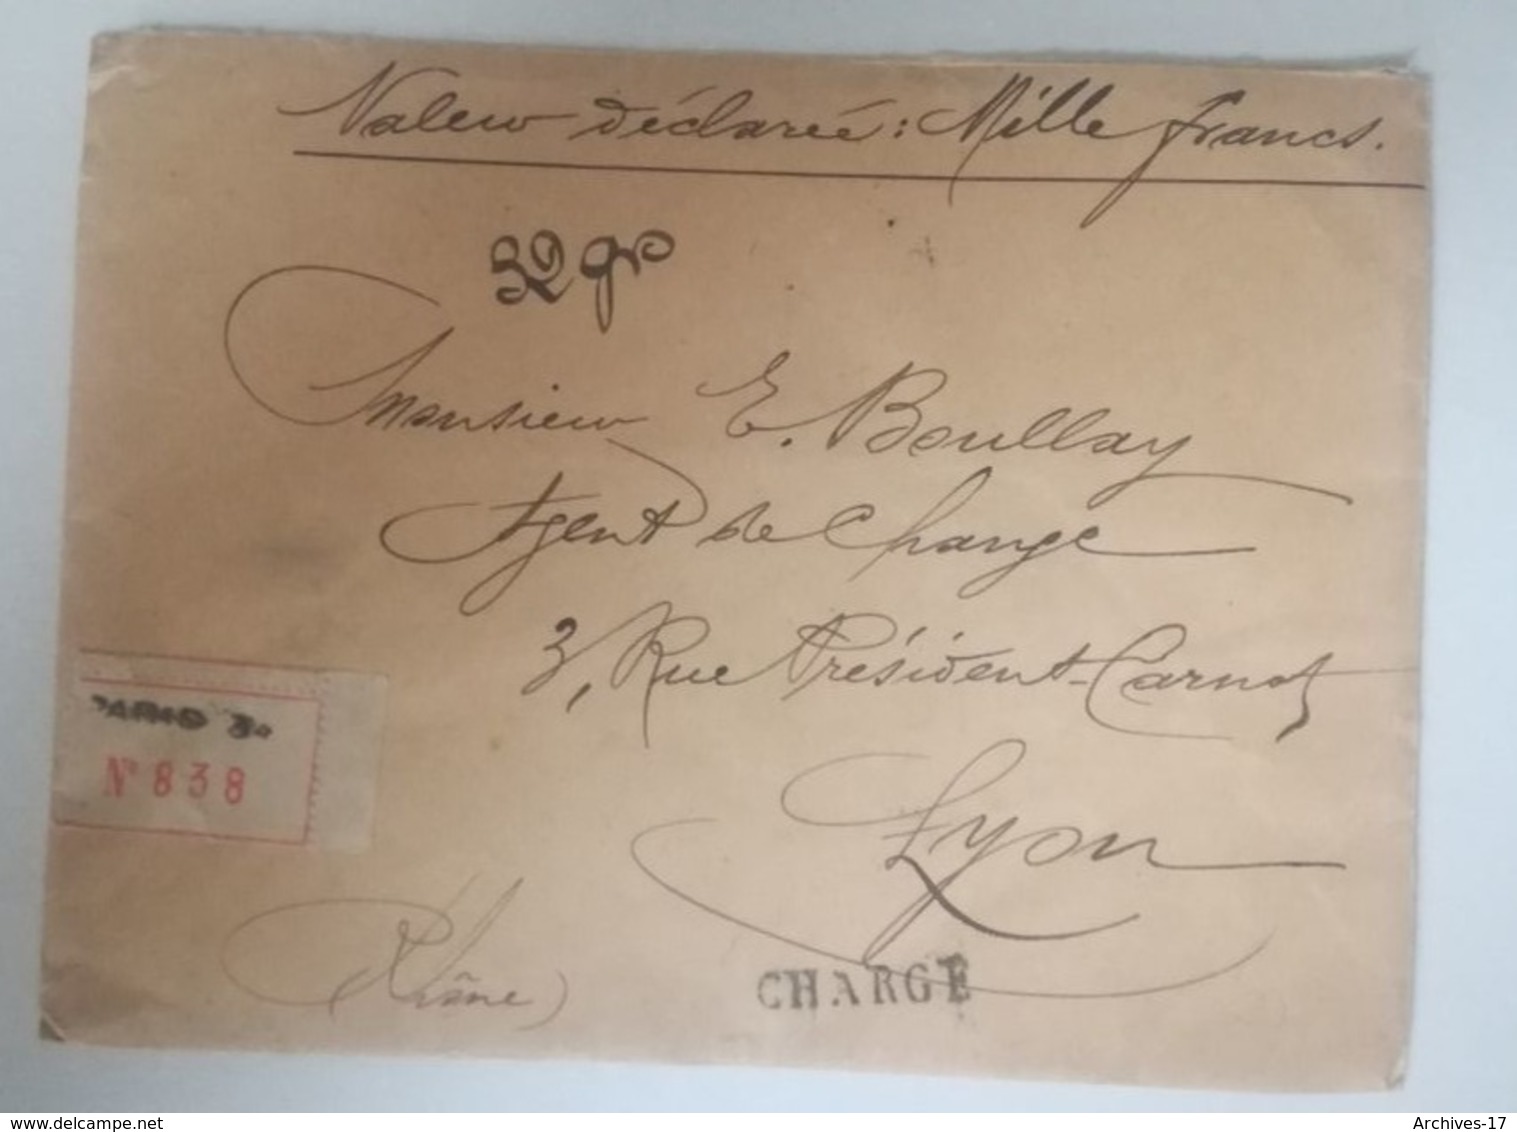 Valeur déclarée : Mille francs.
32 gr
Monsieur E. Boullay
Agent de Change
3, Rue Président-Carnot
Lyon
PARIS
N° 838
(Rhône)
CHARGÉ
www.delcampe.net
Archives-17